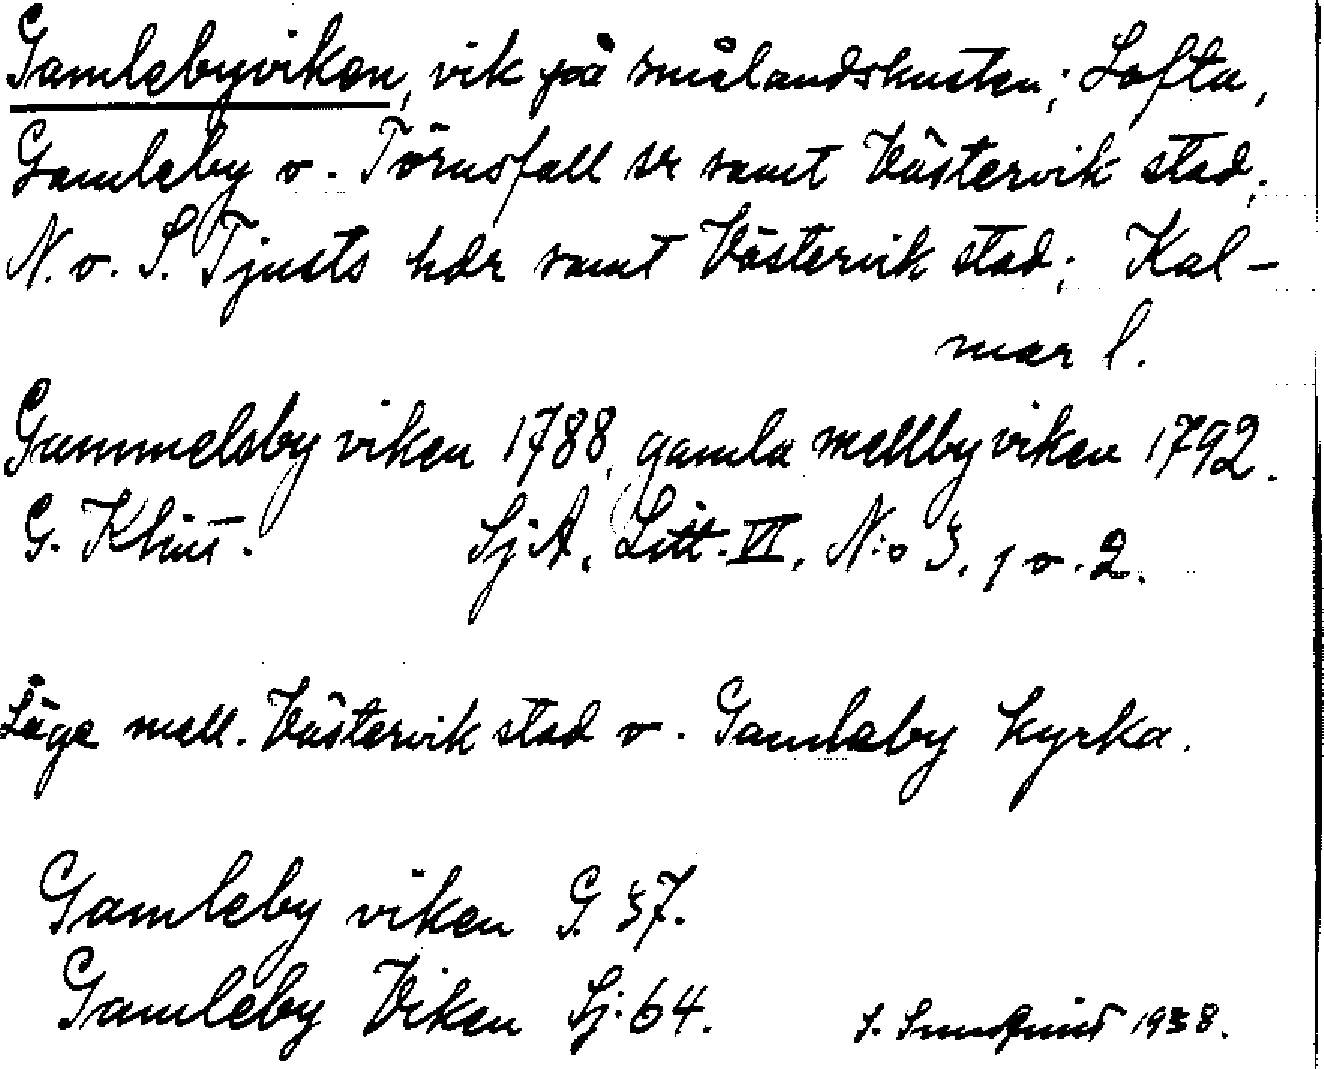 Gamlebyviken, vik på smålandskusten; Lofta,
Gamleby o. Törnsfall sr samt Västervik stad;
N. o. S. Tjusts hdr samt Västervik stad; Kal-
mar l.
Gammelsby viken 1788, gamla mellby viken 1792.
G. Klint. SjA, Litt. VI, N:o 3, 1 o. 2.
Läge mell. Västervik stad o. Gamleby kyrka.
Gamleby viken G. 37.
Gamleby Viken Sj. 64. 1938.